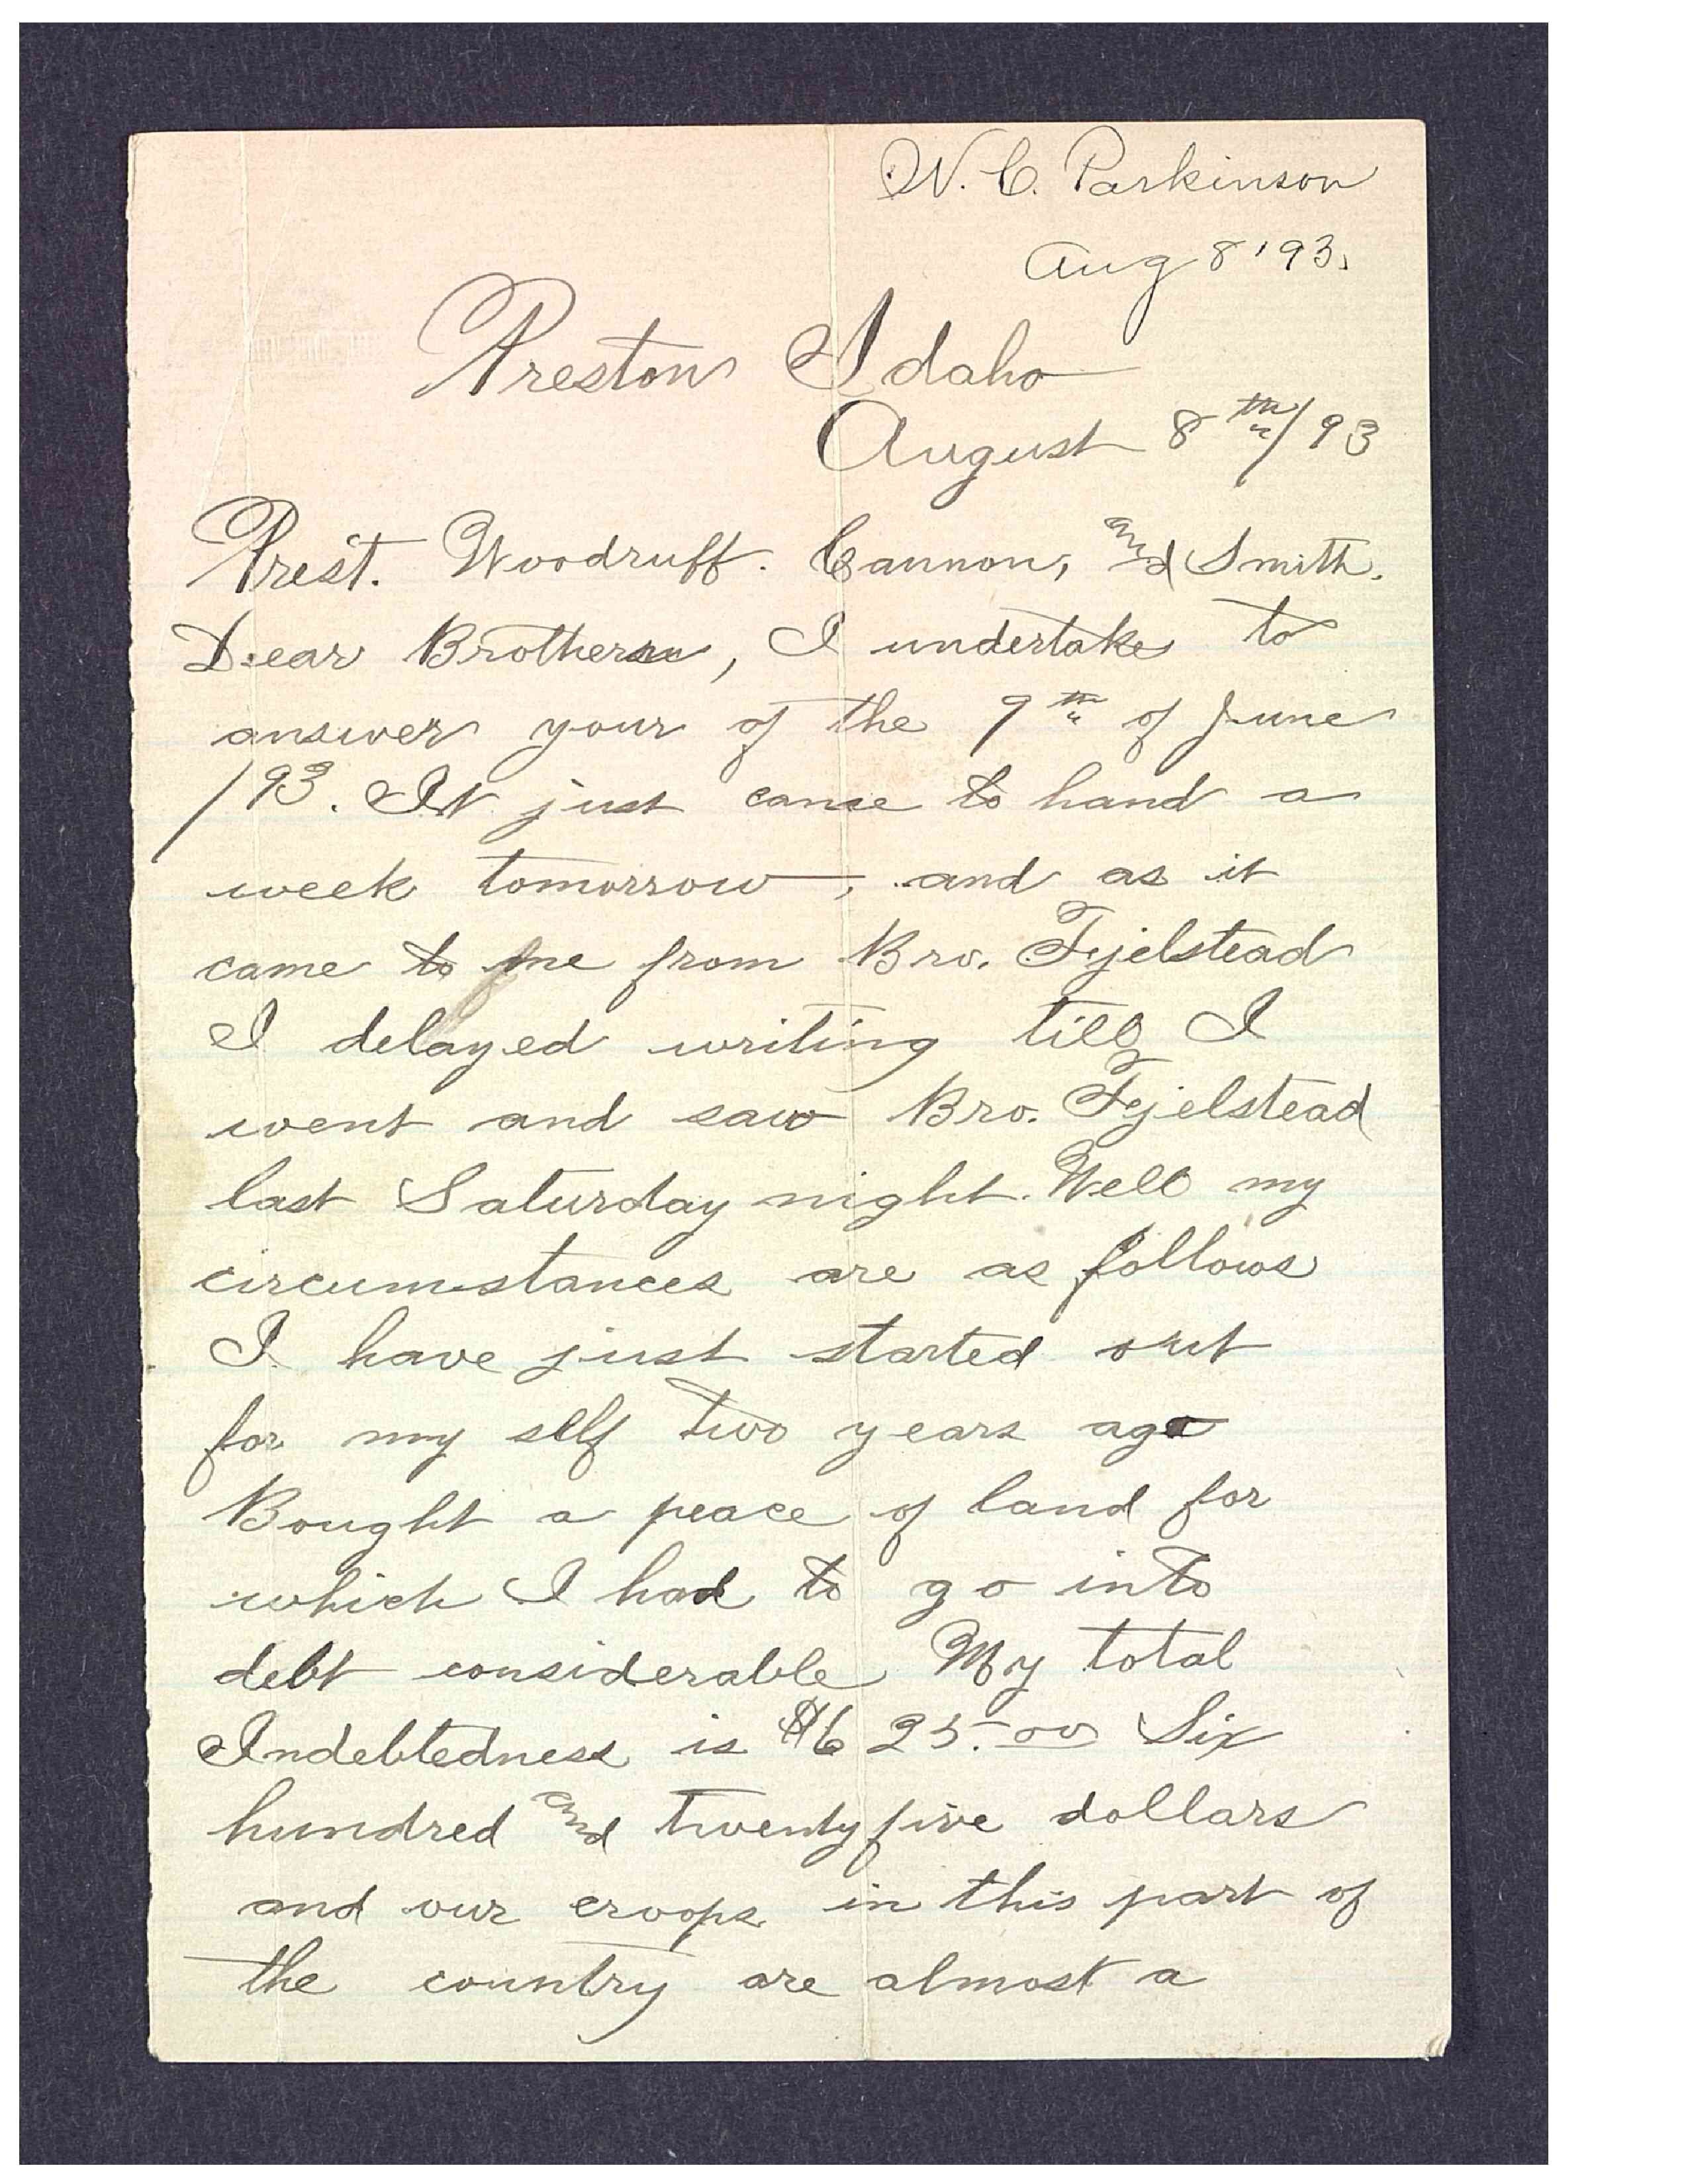 W. C. Parkinson
Aug 8 '93.
Preston Idaho
August 8th/93
Prest. Woodruff. Cannon, and Smith.
Dear Brothern, I undertake to
answer your of the 9th of June
/93. It just came to hand a
week tomorrow, and as it
came to me from Bro. Fjelstead
I delayed writing till I
went and saw Bro. Fjelstead
last Saturday night. Well my
circumstances are as follows
I have just started out
for my self two years ago
Bought a peace of land for
which I had to go into
debt considerable My total
Indebtedness is $625.00 Six
hundred and twenty five dollars
and our croops in this part of
the country are almost a